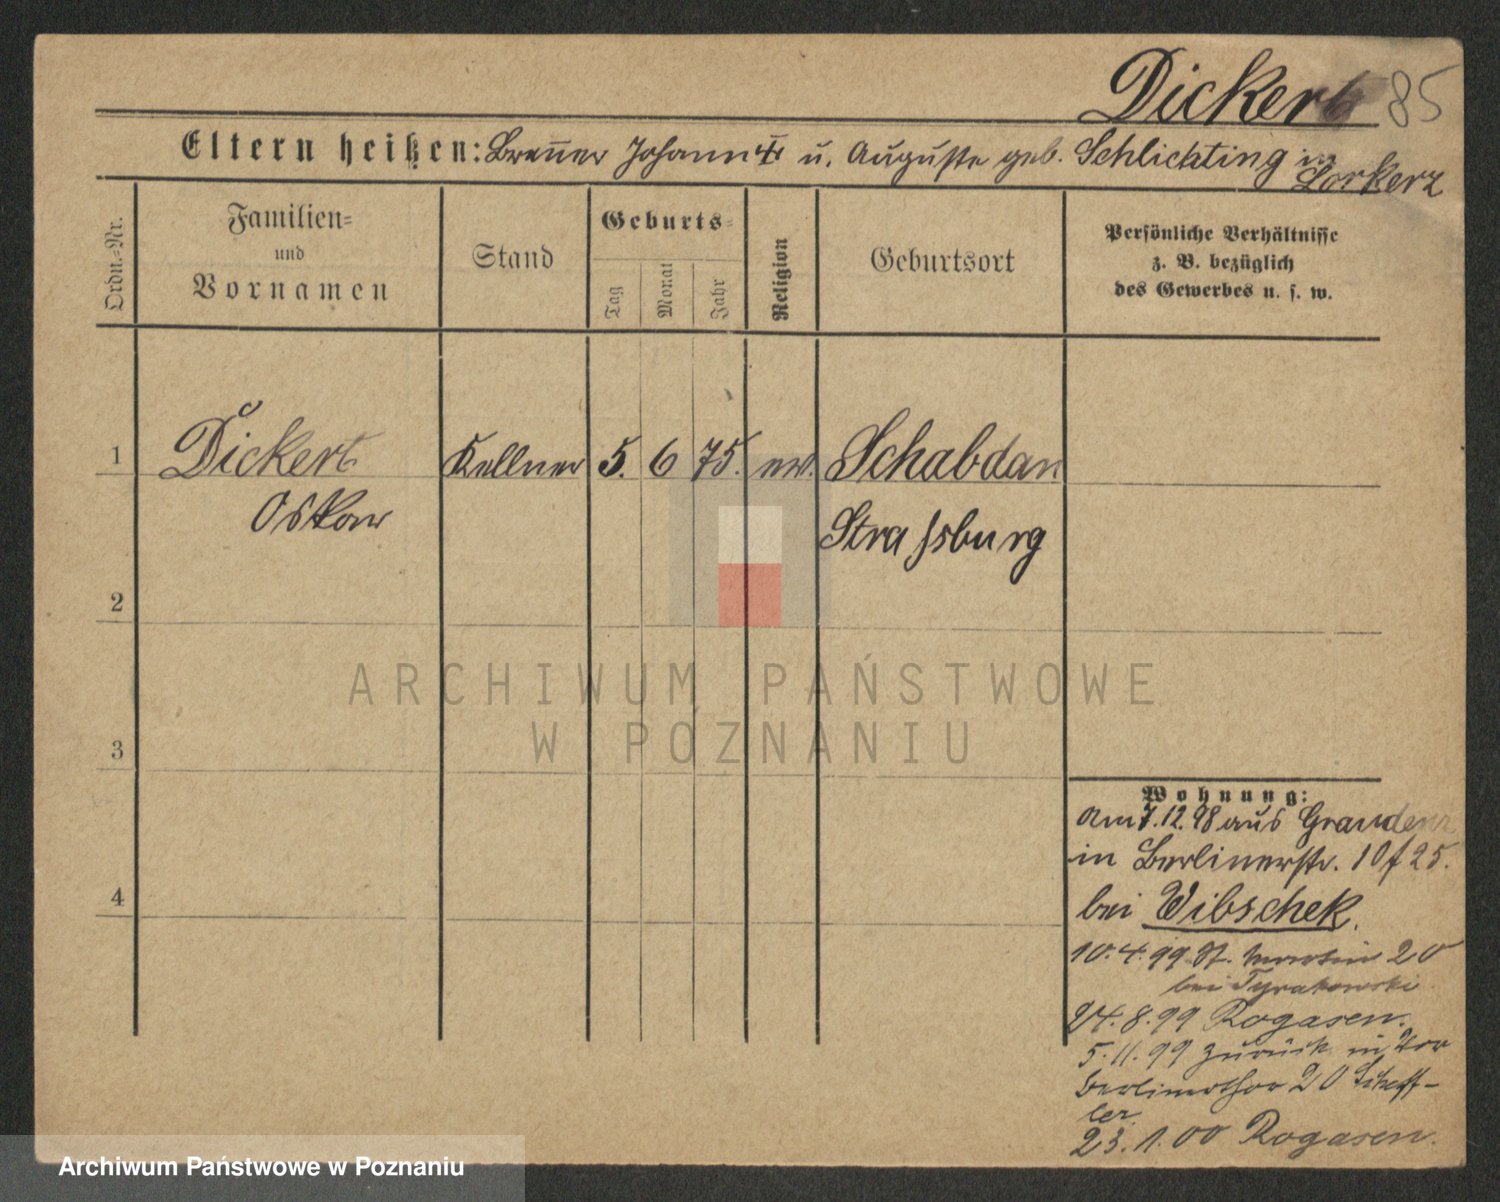 Dickert 85
Eltern heißen: Brenner Johann † u. Auguste geb. Schlichting in
Lorkerz
Ordn.-Nr.
Familien-
und
Vornamen
Stand
Geburts-
Tag
Monat
Jahr
Religion
Geburtsort
Persönliche Verhältnisse
z. B. bezüglich
des Gewerbes u. s. w.
1 Dickert Kellner 5. 6 75. ev. Schabdan
Oskar Strassburg
2
3
4
Wohnung:
am 7.12.98 aus Graudenz
in Berlinerstr. 10 f 25.
bei Wibschek.
10.4.99 St. Martin 20
bei Tyrakowski
24.8.99 Rogasen.
5.11.99 zurück in Vor
Berlinerthor 20 Scheff-
ler.
23.1.00 Rogasen.
ARCHIWUM PAŃSTWOWE
W POZNANIU
Archiwum Państwowe w Poznaniu